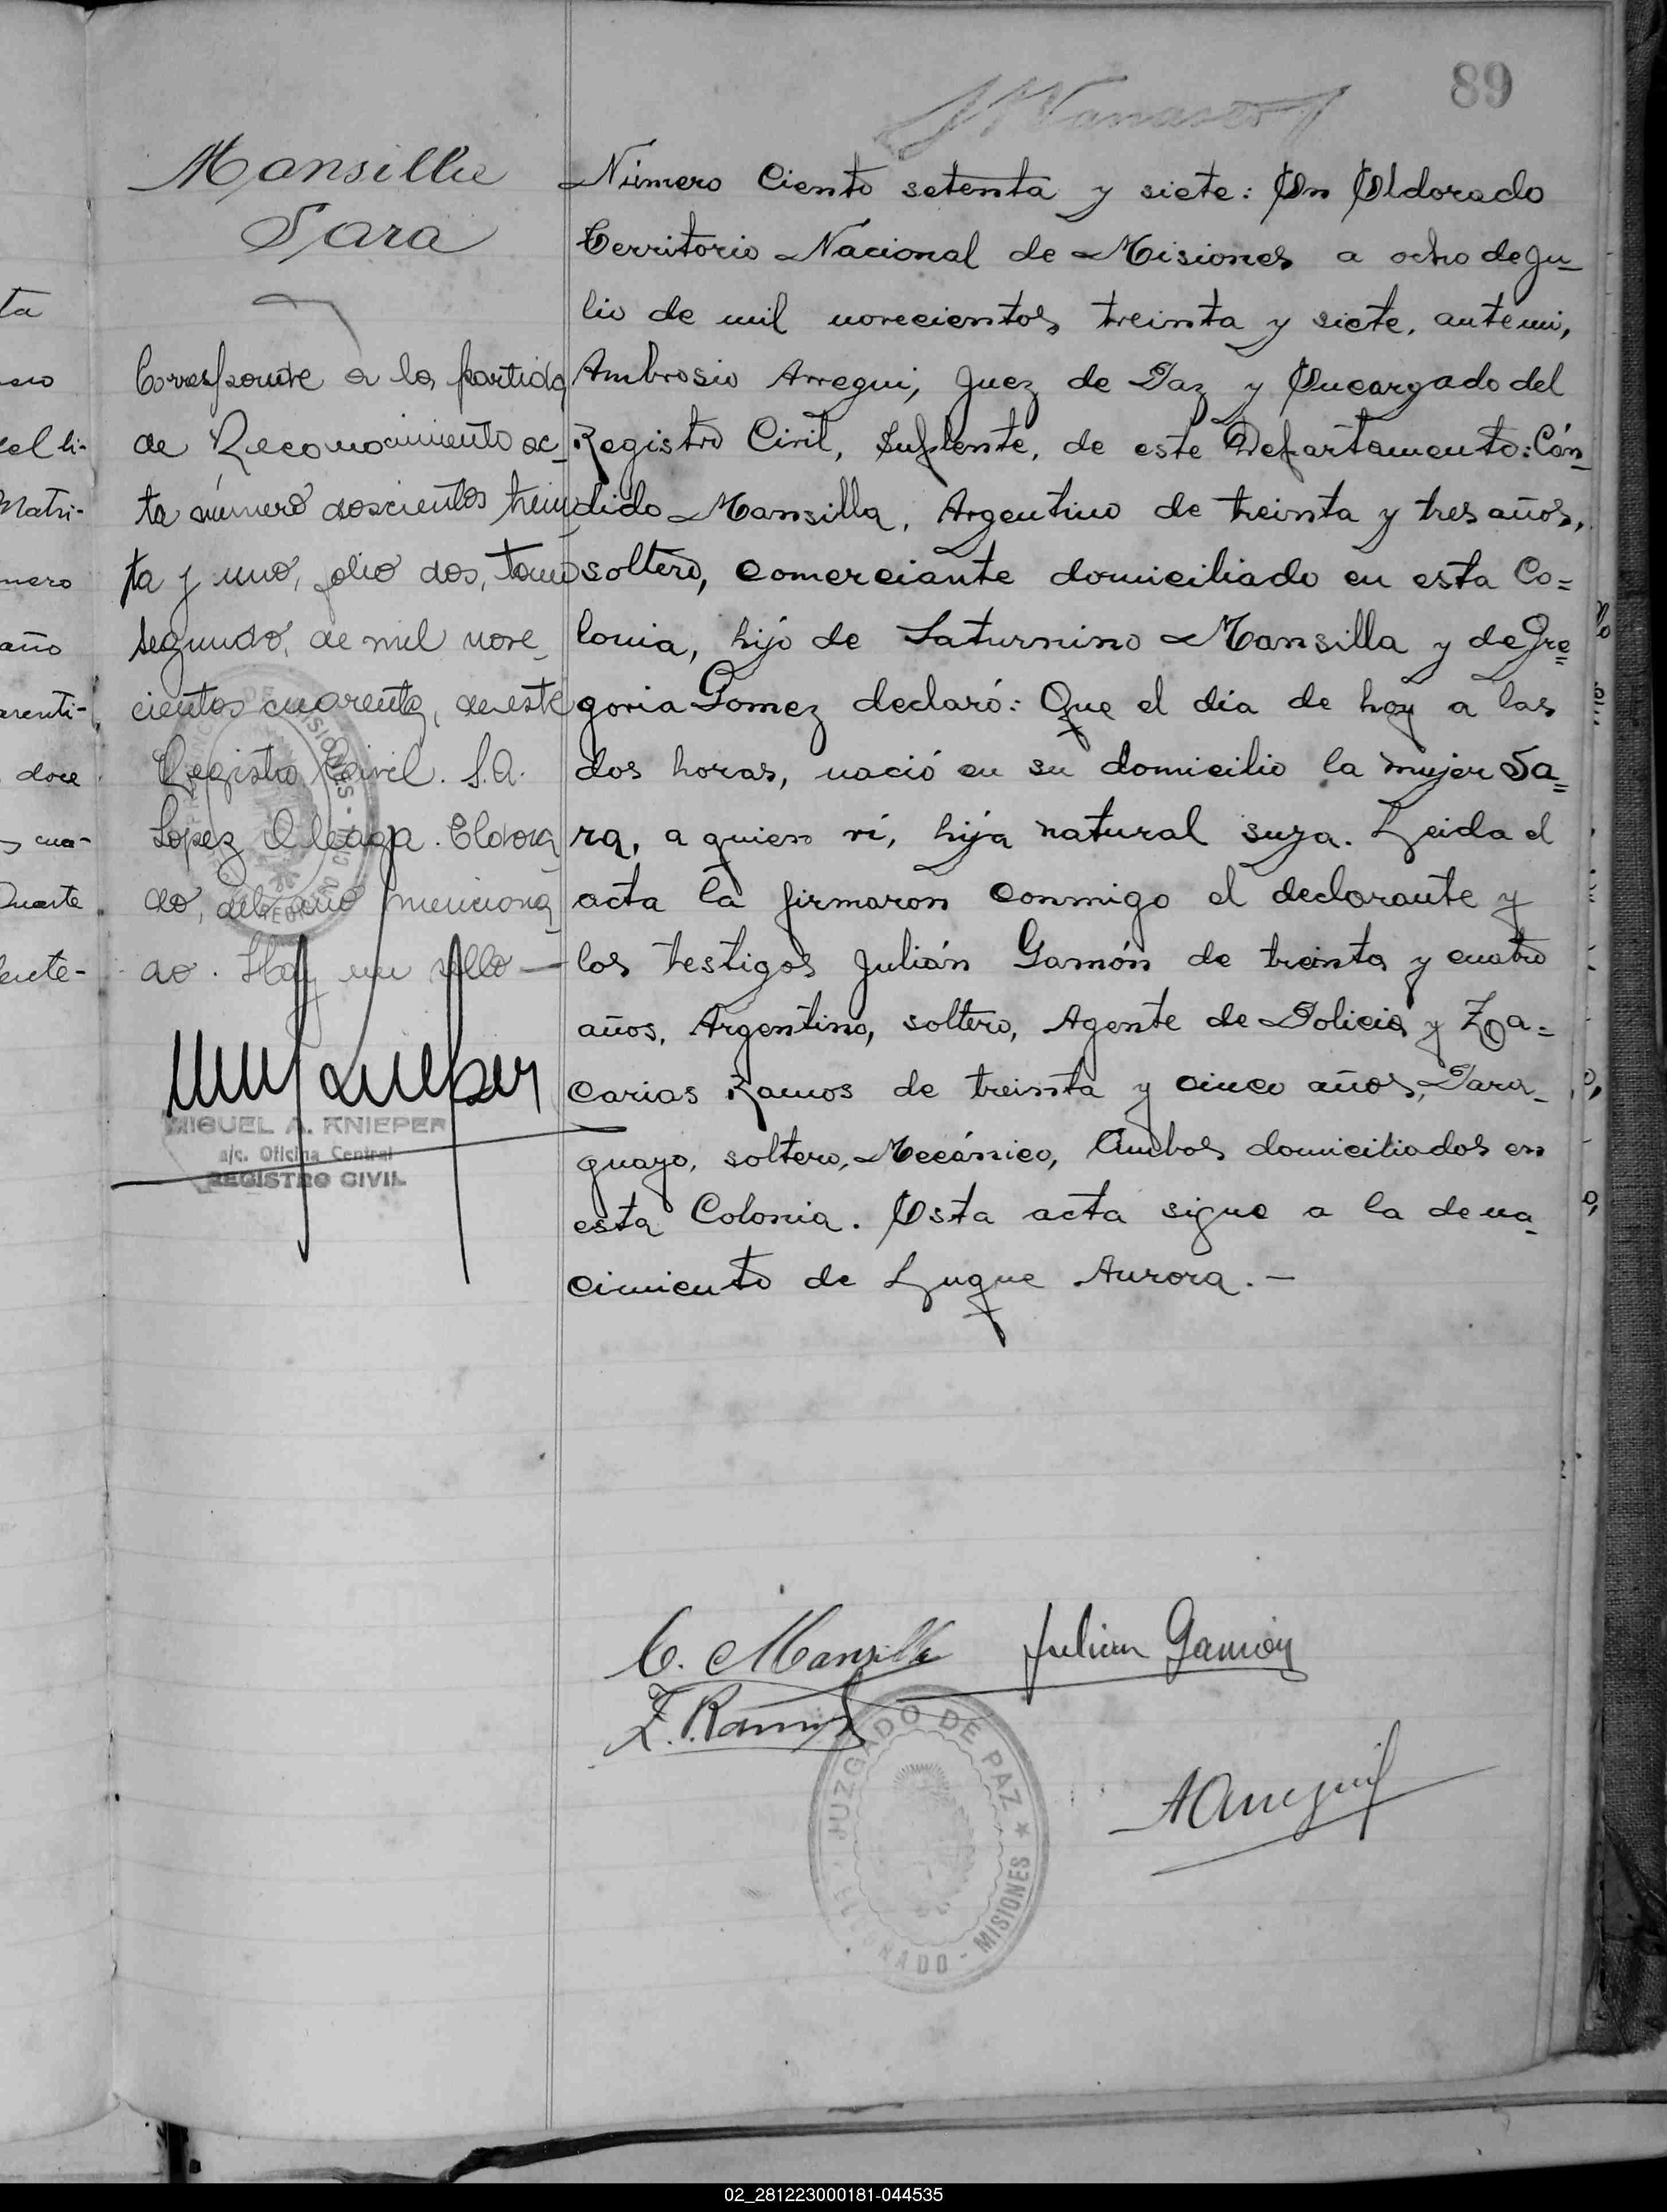 89
Mansilla
Sara
Corresponde a la partida
de Reconocimiento ac_
ta número doscientos trein
ta y uno, folio dos, tomo
segundo, de mil nove_
cientos cuarenta, de este
Registro Civil. S.A.
Lopez Aleaga. Eldora
do, del año menciona
do. Hay un sello —
MIGUEL A. KNIEPER
a/c. Oficina Central
REGISTRO CIVIL
Número Ciento setenta y siete: En Eldorado
Territorio Nacional de Misiones a ocho de Ju_
lio de mil novecientos treinta y siete, ante mi,
Ambrosio Arregui, Juez de Paz y Encargado del
Registro Civil, Suplente, de este Departamento: Cán_
dido Mansilla, Argentino de treinta y tres años,
soltero, comerciante domiciliado en esta Co=
lonia, hijo de Saturnino Mansilla y de Gre=
goria Gomez declaró: Que el día de hoy a las
dos horas, nació en su domicilio la mujer Sa=
ra, a quien ví, hija natural suya. Leida el
acta la firmaron conmigo el declarante y
los testigos Julián Gamón de treinta y cuatro
años, Argentino, soltero, Agente de Policia y Za=
carias Ramos de treinta y cinco años, Para_
guayo, soltero, Mecánico, Ambos domiciliados en
esta Colonia. Esta acta sigue a la de na_
cimiento de Luque Aurora. —
C. Mansilla Julian Gamón
Z. Ramos
JUZGADO DE PAZ ★ ELDORADO - MISIONES
AArregui
02_281223000181-044535